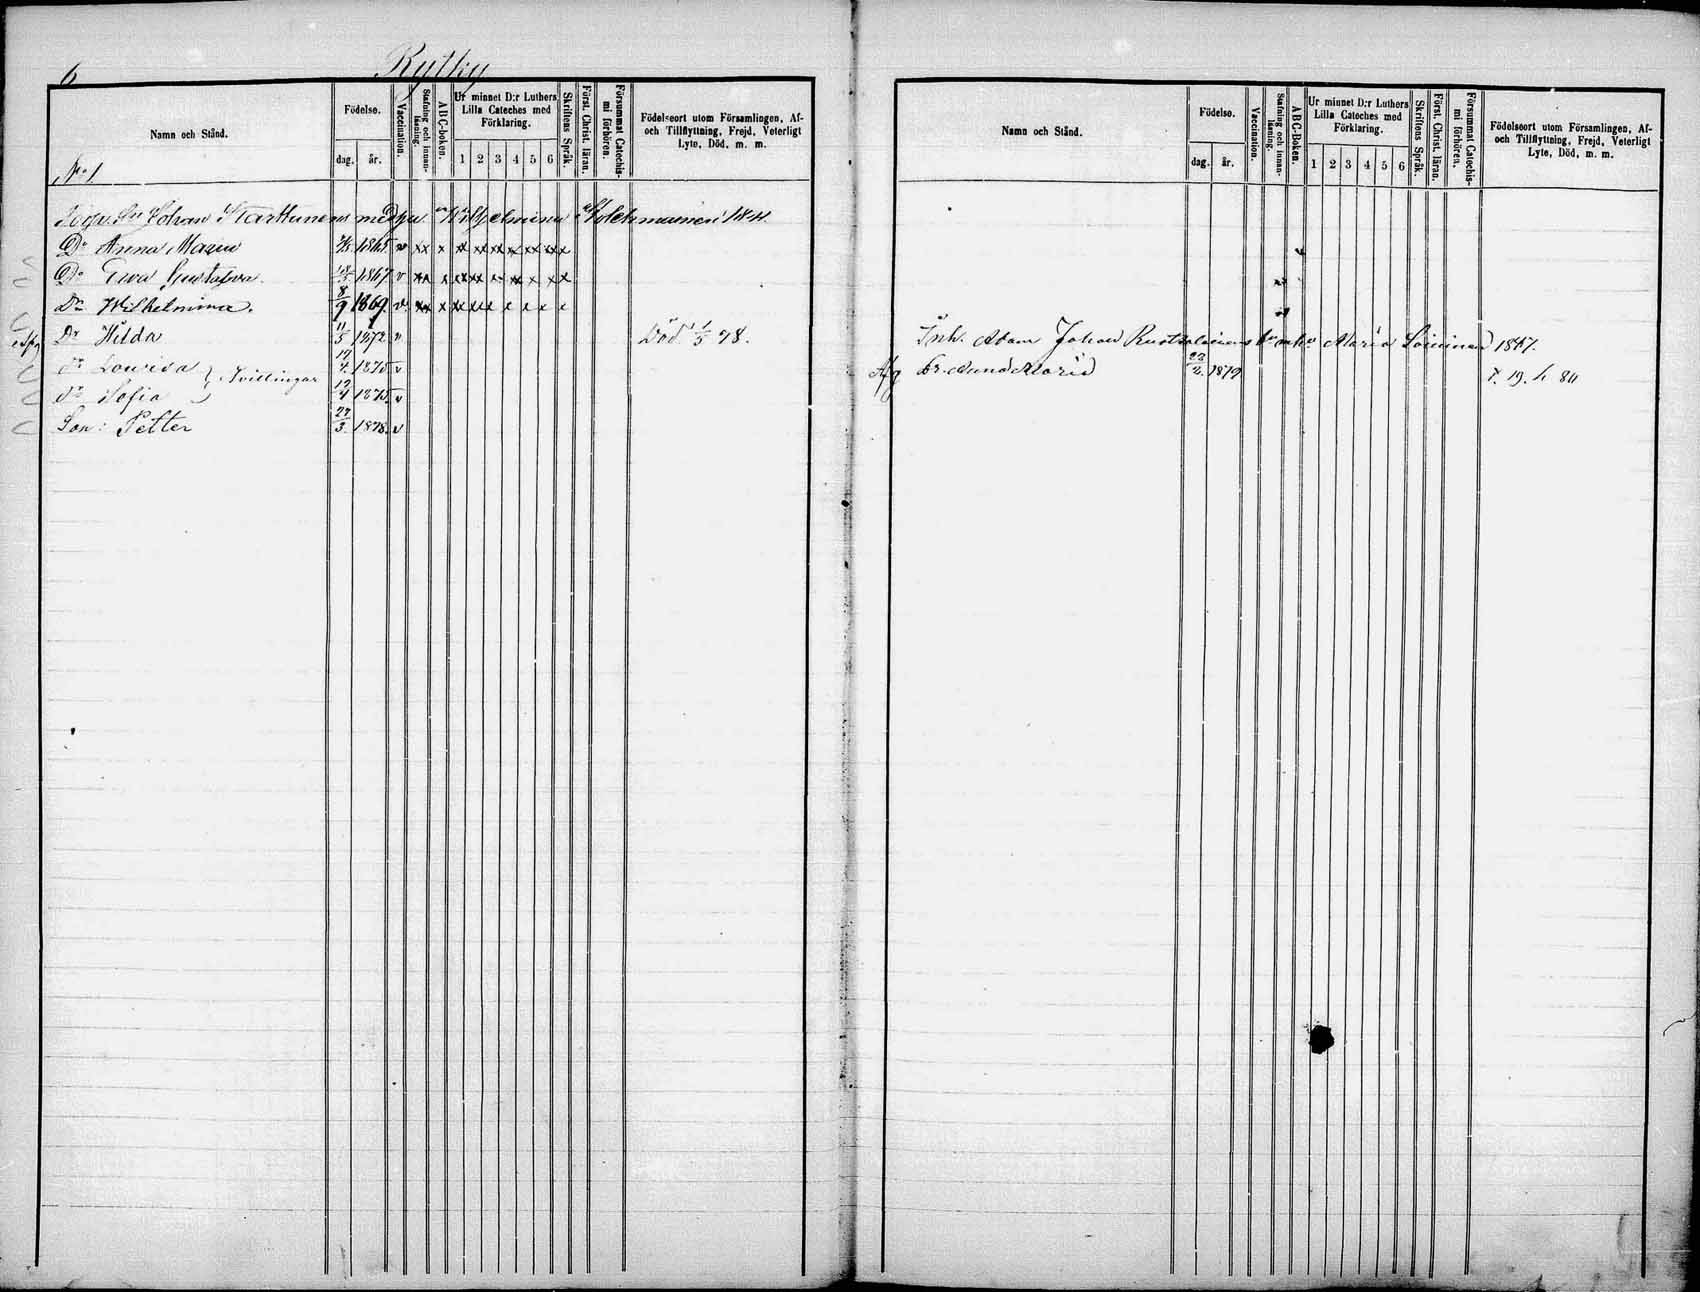 6
Rytky
Namn och Stånd.
Födelse.
dag. år.
Vaccination.
Stafning och innan-läsning.
ABC-boken.
Ur minnet D:r Luthers Lilla Cateches med Förklaring.
1 2 3 4 5 6
Skriftens Språk.
Först. Christ. läran.
Försummat Catechis-mi förhören.
Födelseort utom Församlingen, Af-
och Tillflyttning, Frejd, Veterligt
Lyte, Död, m. m.
No 1
Johan Karttunens Wilhelmina
Dr Anna Maria 1865 v x x x x x x x x x
Dr Eva Gustafva. 1867 v x x x x x x x x
Dr Wilhelmina. 8/9 1869. v x x x x x x x x
Dr Hilda 11/5 1872 v Död 1/5 78.
dr Lovisa } Tvillingar 12/4 1875 v
dr Sofia 12/4 1875 v
Son: Petter 27/3. 1878. v
Namn och Stånd.
Födelse.
dag. år.
Vaccination.
Stafning och innan-läsning.
ABC-Boken.
Ur minnet D:r Luthers Lilla Cateches med Förklaring.
1 2 3 4 5 6
Skriftens Språk.
Först. Christ. läran.
Försummat Catechis-mi förhören.
Födelseort utom Församlingen, Af-
och Tillflyttning, Frejd, Veterligt
Lyte, Död, m. m.
Inh. Adam Johan Maria Loininen 1847.
Dr. Anna Maria 1879 19. 4 80